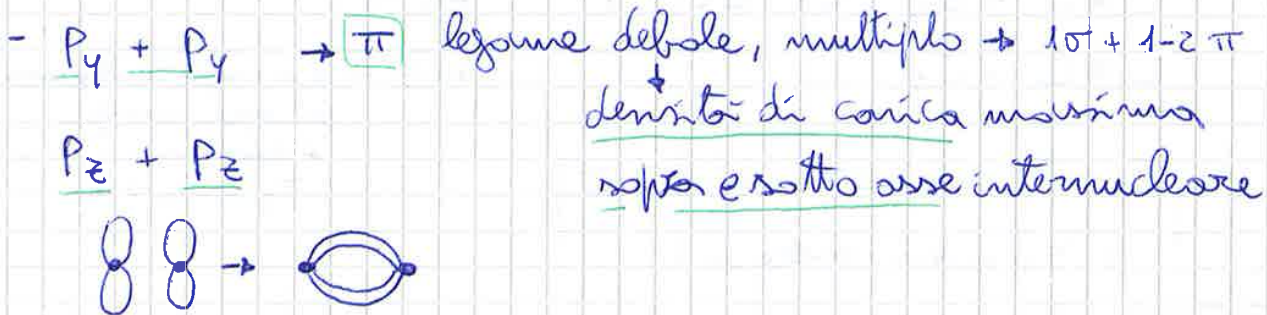 - Py + Py → π legame debole, multiplo → 1σ + 1-2 π
densità di carica massima
Pz + Pz
sopra e sotto asse internucleare